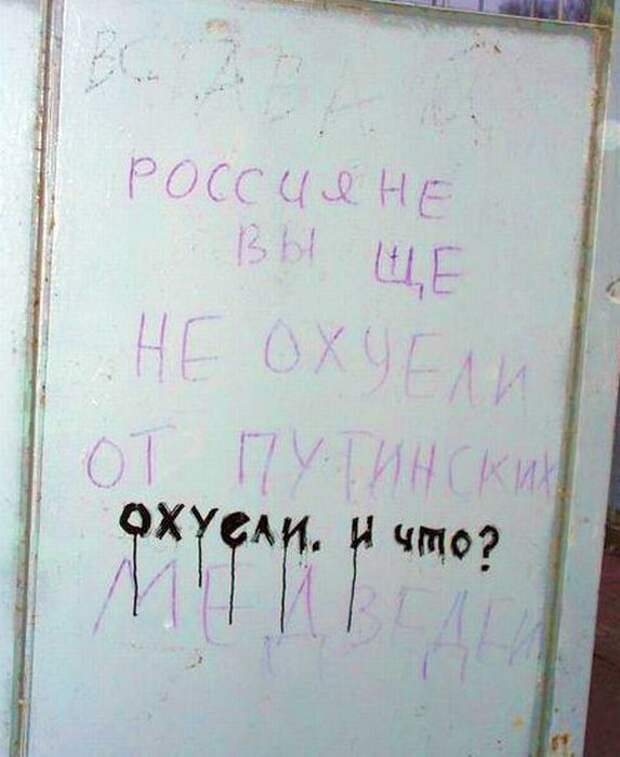 ВСТАВАЙ
РОССИЯНЕ
ВЫ ЩЕ
НЕ ОХУЕЛИ
ОТ ПУТИНСКИХ
ОХУЕЛИ. И ЧТО?
МЕДВЕДЕЙ